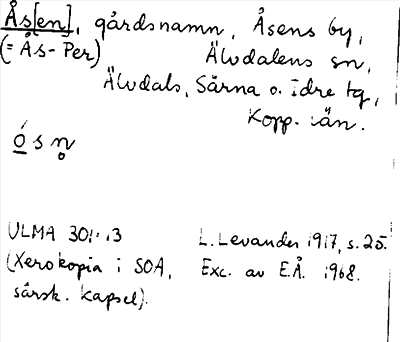 Ås[en], gårdsnamn, Åsens by,
(= Ås-Per) Älvdalens sn,
Älvdals, Särna o. Idre tg,
Kopp. län.
ó s n̥
ULMA 301:13 L. Levander 1917, s. 25.
(Xerokopia i SOA, Exc. av E.Å. 1968.
särsk. kapsel).